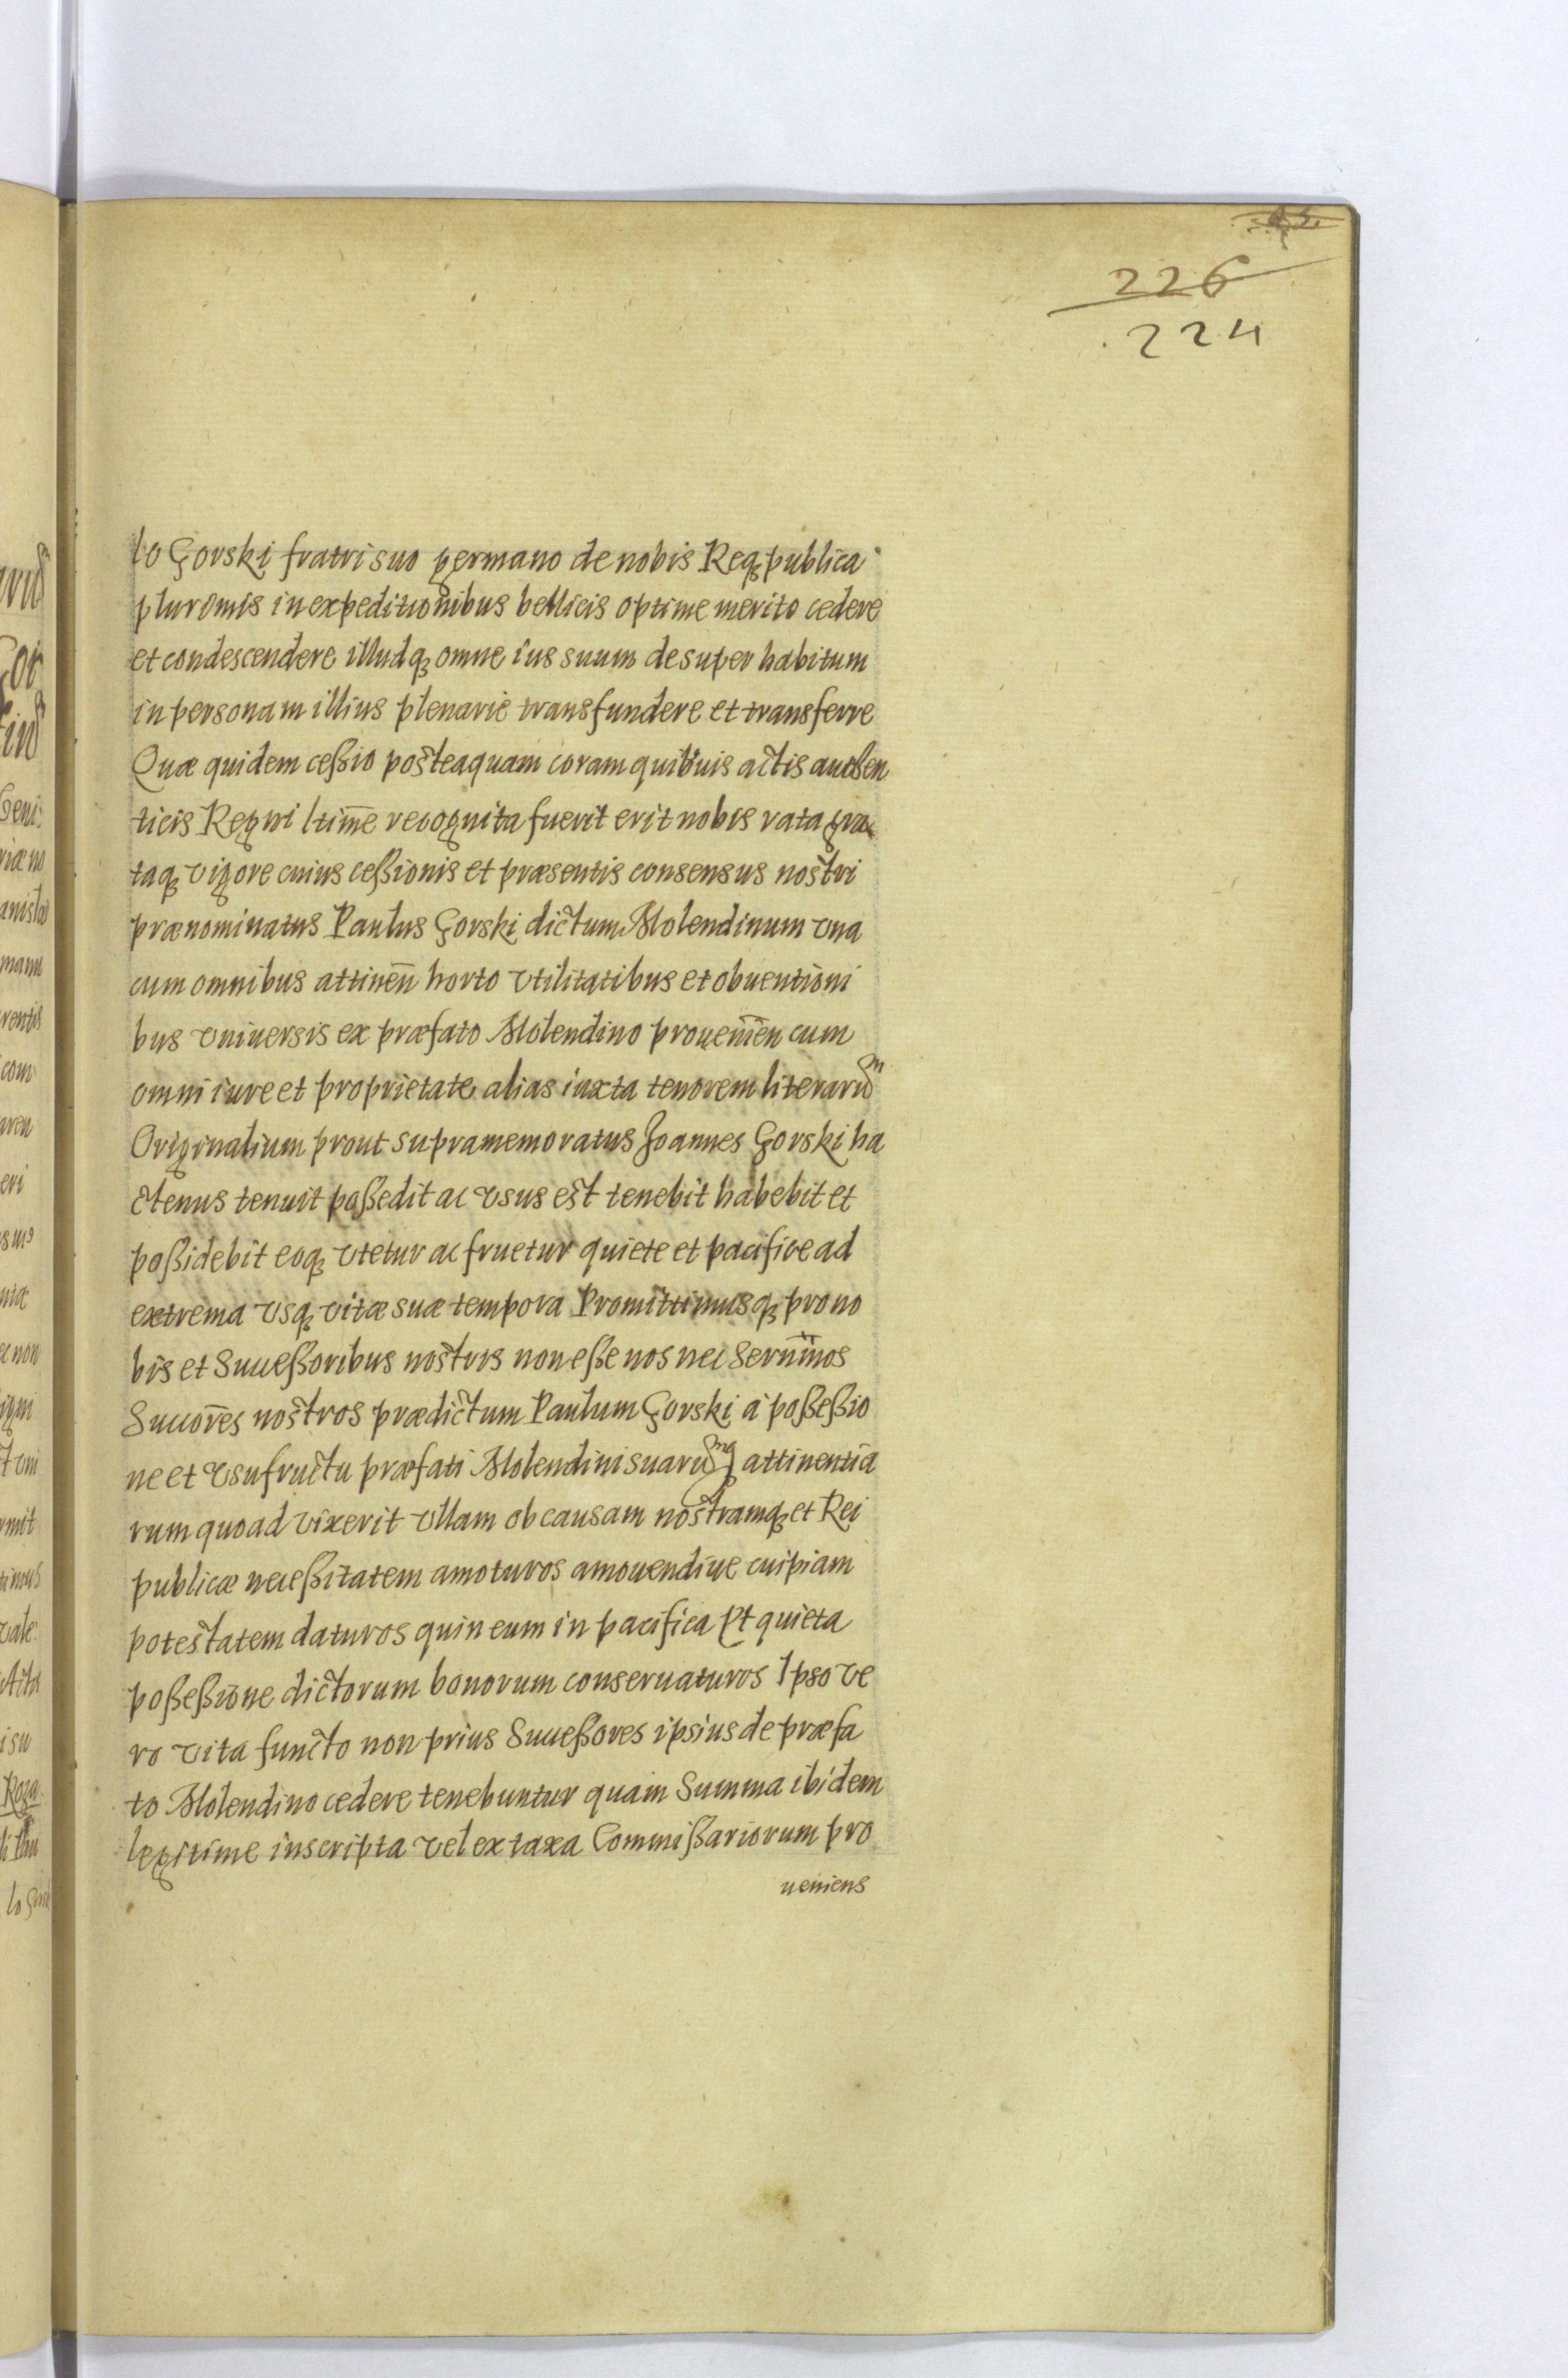 226
224
lo Gorski fratri suo germano de nobis Reqꝫ publica
plurimis in expeditionibus bellicis optime merito cedere
et condescendere illudqꝫ omne ius suum desuper habitum
in personam illius plenarie transfundere et transferre
Quæ quidem ceßio posteaquam coram quibuis actis authen
ticis Regni ltim̄e recognita fuerit erit nobis rata gra
taqꝫ vigore cuius ceßionis et præsentis consensus nostri
prænominatus Paulus Gorski dictum Molendinum vna
cum omnibus attineñ horto vtilitatibus et obuentioni
bus vniuersis ex præfato Molendino proueñien cum
omni iure et proprietate alias iuxta tenorem literarum
Originalium prout supramemoratus Joannes Gorski ha
ctenus tenuit poßedit ac vsus est tenebit habebit et
poßidebit eoqꝫ vtetur ac fruetur quiete et pacifice ad
extrema vsqꝫ vitæ suæ tempora Promittimusqꝫ pro no
bis et Succeßoribus nostris non eße nos nec Serm̄mos
Succor̄es nostros prædictum Paulum Gorski à poßeßio
ne et vsufructu præfati Molendini suarumqꝫ attinentia
rum quoad vixerit vllam ob causam nostramqꝫ et Rei
publicæ neceßitatem amoturos amouendiue cuipiam
potestatem daturos quin eum in pacifica et quieta
poßeßione dictorum bonorum conseruaturos Ipso ve
ro vita functo non prius Succeßores ipsius de præfa
to Molendino cedere tenebuntur quam Summa ibidem
legitime inscripta vel ex taxa Commißariorum pro
ueniens